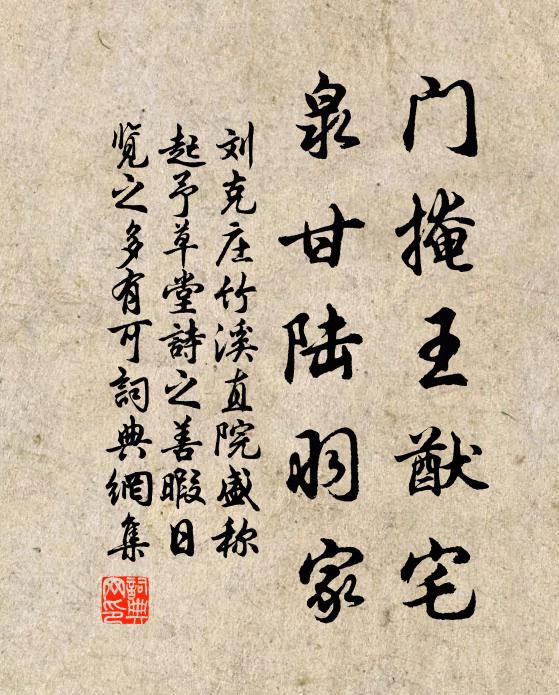 门掩王猷宅
泉甘陆羽家
刘克庄竹溪直院盛称
起予草堂詩之善暇日
覽之多有可詞典網集
詞典网印